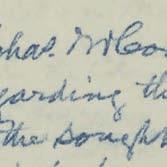 Chas. McCo
garding th
the sought